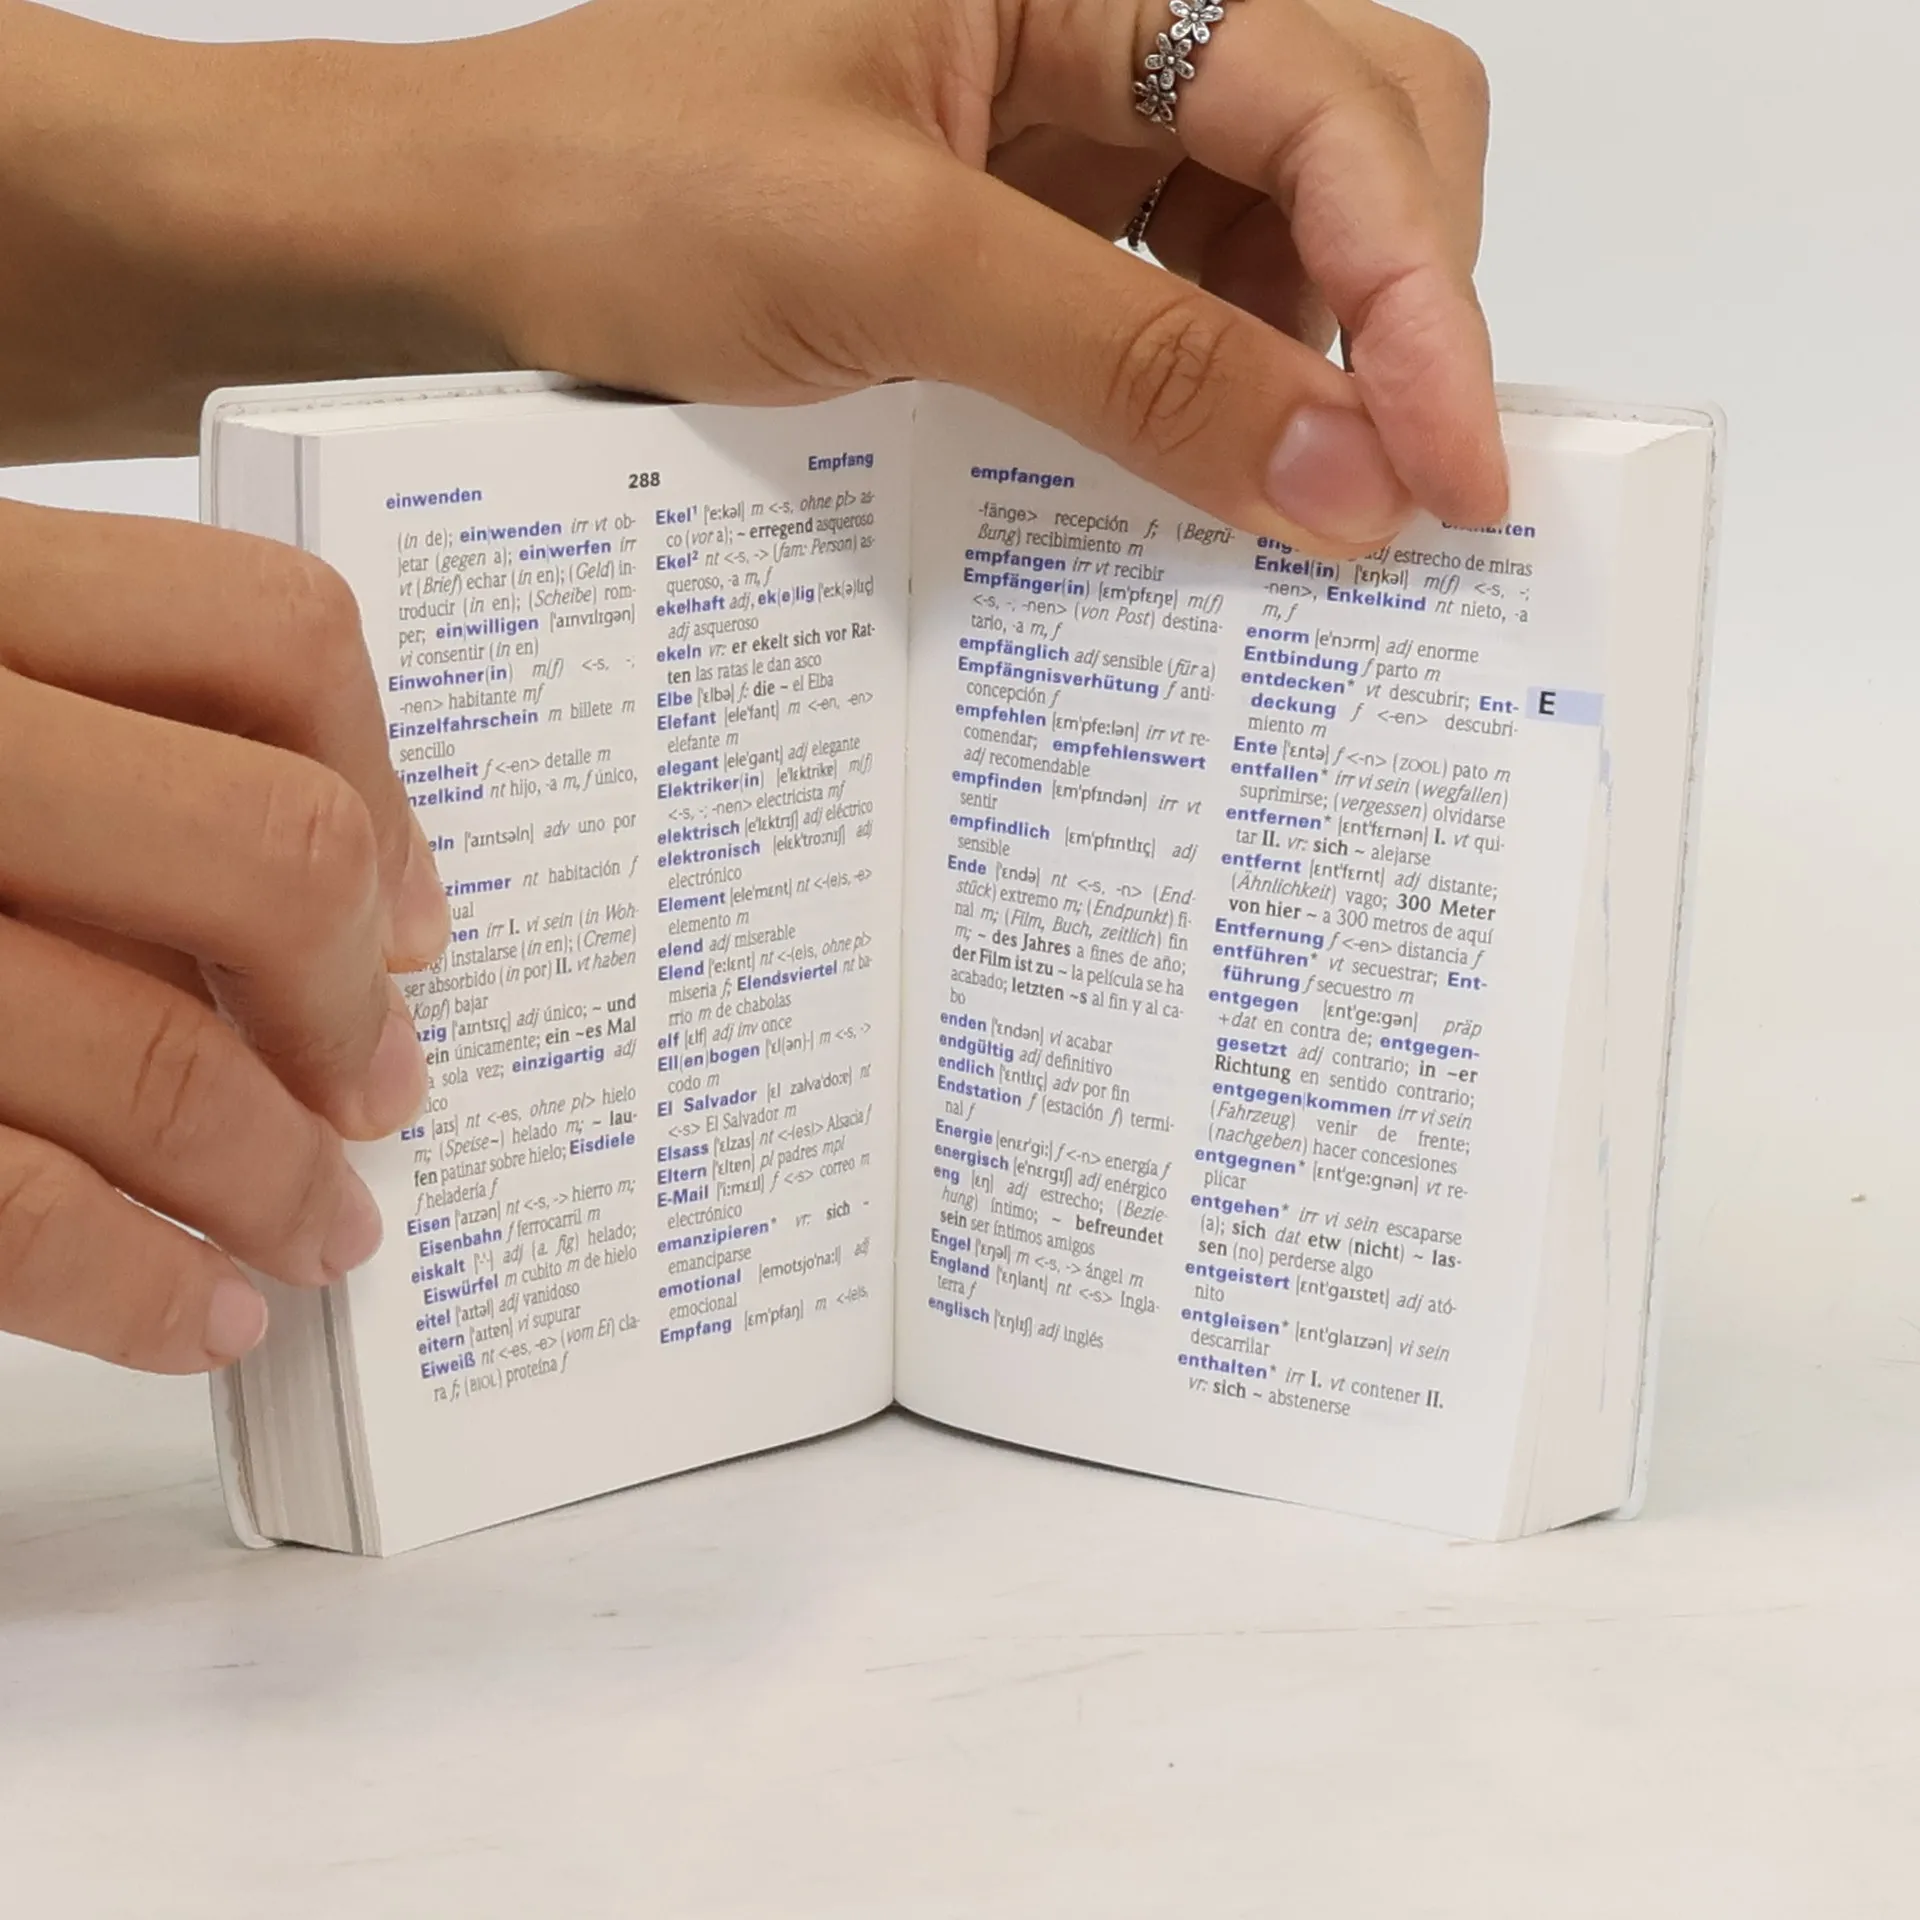 einwenden
288
Empfang
(in de); ein|wenden irr vt ob-
jetar (gegen a); ein|werfen irr
vt (Brief) echar (in en); (Geld) in-
troducir (in en); (Scheibe) rom-
per; ein|willigen ['aɪnvɪlɪgən]
vi consentir (in en)
Einwohner(in) m(f) <-s, -;
-nen> habitante mf
Einzelfahrschein m billete m
sencillo
inzelheit f <-en> detalle m
nzelkind nt hijo, -a m, f único,
eln ['aɪntsəln] adv uno por
zimmer nt habitación f
ual
hen irr I. vi sein (in Woh-
ng) instalarse (in en); (Creme)
ser absorbido (in por) II. vt haben
(Kopf) bajar
zig ['aɪntsɪç] adj único; ~ und
ein únicamente; ein ~es Mal
a sola vez; einzigartig adj
ico
Eis [aɪs] nt <-es, ohne pl> hielo
m; (Speise~) helado m; ~ lau-
fen patinar sobre hielo; Eisdiele
f heladería f
Eisen ['aɪzən] nt <-s, -> hierro m;
Eisenbahn f ferrocarril m
eiskalt ['-'-] adj (a. fig) helado;
Eiswürfel m cubito m de hielo
eitel ['aɪtəl] adj vanidoso
eitern ['aɪtɐn] vi supurar
Eiweiß nt <-es, -e> (vom Ei) cla-
ra f; (BIOL) proteína f
Ekel¹ ['e:kəl] m <-s, ohne pl> as-
co (vor a); ~ erregend asqueroso
Ekel² nt <-s, -> (fam: Person) as-
queroso, -a m, f
ekelhaft adj, ek(e)lig ['e:k(ə)lɪç]
adj asqueroso
ekeln vr: er ekelt sich vor Rat-
ten las ratas le dan asco
Elbe ['ɛlbə] f: die ~ el Elba
Elefant [ele'fant] m <-en, -en>
elefante m
elegant [ele'gant] adj elegante
Elektriker(in) [e'lɛktrikɐ] m(f)
<-s, -; -nen> electricista mf
elektrisch [e'lɛktrɪʃ] adj eléctrico
elektronisch [elɛk'tro:nɪʃ] adj
electrónico
Element [ele'mɛnt] nt <-(e)s, -e>
elemento m
elend adj miserable
Elend ['e:lɛnt] nt <-(e)s, ohne pl>
miseria f; Elendsviertel nt ba-
rrio m de chabolas
elf [ɛlf] adj inv once
Ell(en)bogen ['ɛl(ən)-] m <-s, ->
codo m
El Salvador [ɛl zalva'do:ɐ] nt
<-s> El Salvador m
Elsass ['ɛlzas] nt <-(es)> Alsacia f
Eltern ['ɛltɐn] pl padres mpl
E-Mail ['i:mɛɪl] f <-s> correo m
electrónico
emanzipieren* vr: sich ~
emanciparse
emotional [emotsjo'na:l] adj
emocional
Empfang [ɛm'pfaŋ] m <-(e)s,
empfangen
-fänge> recepción f; (Begrü-
ßung) recibimiento m
empfangen irr vt recibir
Empfänger(in) [ɛm'pfɛŋɐ] m(f)
<-s, -; -nen> (von Post) destina-
tario, -a m, f
empfänglich adj sensible (für a)
Empfängnisverhütung f anti-
concepción f
empfehlen [ɛm'pfe:lən] irr vt re-
comendar; empfehlenswert
adj recomendable
empfinden [ɛm'pfɪndən] irr vt
sentir
empfindlich [ɛm'pfɪntlɪç] adj
sensible
Ende ['ɛndə] nt <-s, -n> (End-
stück) extremo m; (Endpunkt) fi-
nal m; (Film, Buch, zeitlich) fin
m; ~ des Jahres a fines de año;
der Film ist zu ~ la película se ha
acabado; letzten ~s al fin y al ca-
bo
enden ['ɛndən] vi acabar
endgültig adj definitivo
endlich ['ɛntlɪç] adv por fin
Endstation f (estación f) termi-
nal f
Energie [enɛr'gi:] f <-n> energía f
energisch [e'nɛrgɪʃ] adj enérgico
eng [ɛŋ] adj estrecho; (Bezie-
hung) íntimo; ~ befreundet
sein ser íntimos amigos
Engel ['ɛŋəl] m <-s, -> ángel m
England ['ɛŋlant] nt <-s> Ingla-
terra f
englisch ['ɛŋlɪʃ] adj inglés
eng adj estrecho de miras
Enkel(in) ['ɛŋkəl] m(f) <-s, -;
-nen>, Enkelkind nt nieto, -a
m, f
enorm [e'nɔrm] adj enorme
Entbindung f parto m
entdecken* vt descubrir; Ent-
deckung f <-en> descubri-
miento m
Ente ['ɛntə] f <-n> (ZOOL) pato m
entfallen* irr vi sein (wegfallen)
suprimirse; (vergessen) olvidarse
entfernen* [ɛnt'fɛrnən] I. vt qui-
tar II. vr: sich ~ alejarse
entfernt [ɛnt'fɛrnt] adj distante;
(Ähnlichkeit) vago; 300 Meter
von hier ~ a 300 metros de aquí
Entfernung f <-en> distancia f
entführen* vt secuestrar; Ent-
führung f secuestro m
entgegen [ɛnt'ge:gən] präp
+dat en contra de; entgegen-
gesetzt adj contrario; in ~er
Richtung en sentido contrario;
entgegen|kommen irr vi sein
(Fahrzeug) venir de frente;
(nachgeben) hacer concesiones
entgegnen* [ɛnt'ge:gnən] vt re-
plicar
entgehen* irr vi sein escaparse
(a); sich dat etw (nicht) ~ las-
sen (no) perderse algo
entgeistert [ɛnt'gaɪstɐt] adj ató-
nito
entgleisen* [ɛnt'glaɪzən] vi sein
descarrilar
enthalten* irr I. vt contener II.
vr: sich ~ abstenerse
E